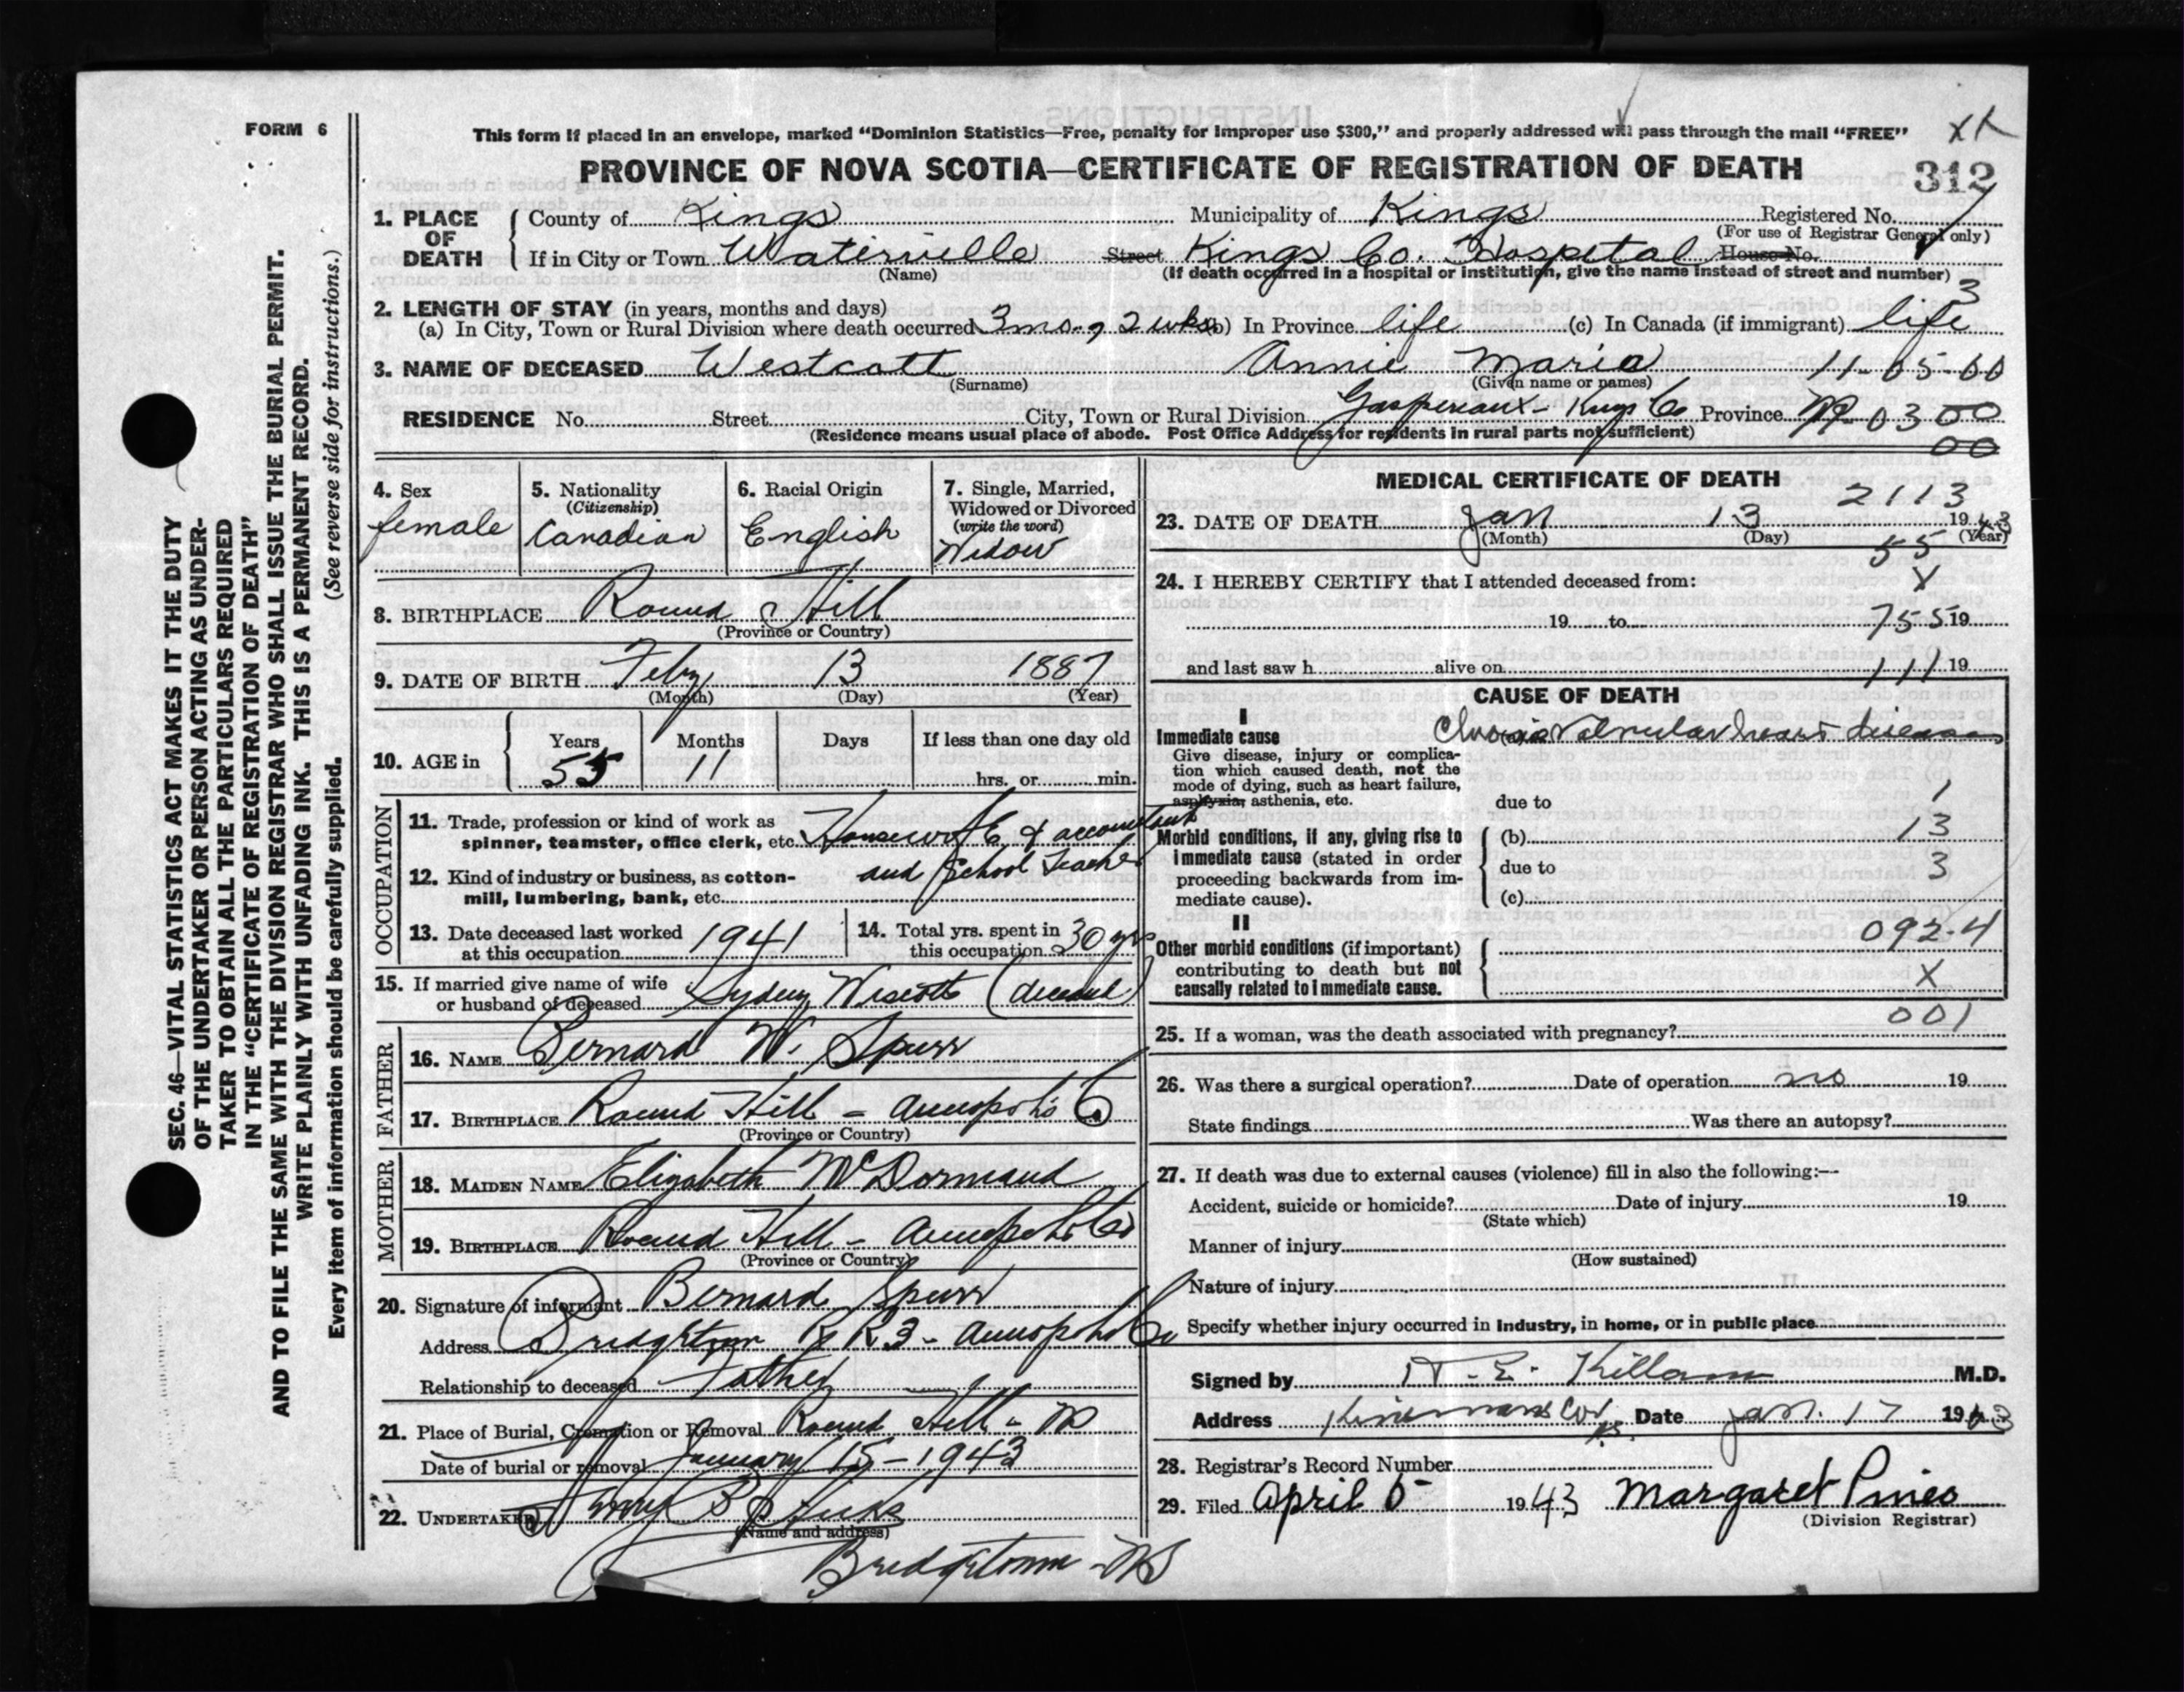 FORM 6
This form if placed in an envelope, marked “Dominion Statistics—Free, penalty for improper use $300,” and properly addressed will pass through the mail “FREE”
PROVINCE OF NOVA SCOTIA—CERTIFICATE OF REGISTRATION OF DEATH
312
1. PLACE OF DEATH
County of Kings Municipality of Kings Registered No.
(For use of Registrar General only)
If in City or Town Waterville Street Kings Co. Hospital House No.
(Name) (If death occurred in a hospital or institution, give the name instead of street and number)
3
2. LENGTH OF STAY (in years, months and days)
(a) In City, Town or Rural Division where death occurred 3 mo., 2 wks (b) In Province life (c) In Canada (if immigrant) life
3. NAME OF DECEASED Westcott Annie Maria 11-05-00
(Surname) (Given name or names)
RESIDENCE No. Street City, Town or Rural Division Gaspereaux - Kings Co Province 0300
(Residence means usual place of abode. Post Office Address for residents in rural parts not sufficient)
00
4. Sex
female
5. Nationality
(Citizenship)
Canadian
6. Racial Origin
English
7. Single, Married,
Widowed or Divorced
(write the word)
Widow
8. BIRTHPLACE Round Hill
(Province or Country)
9. DATE OF BIRTH Feby 13 1887
(Month) (Day) (Year)
10. AGE in
Years Months Days If less than one day old
55 11 hrs. or min.
OCCUPATION
11. Trade, profession or kind of work as
spinner, teamster, office clerk, etc. Housewife & accountant
12. Kind of industry or business, as cotton- and School Teacher
mill, lumbering, bank, etc.
13. Date deceased last worked
at this occupation 1941
14. Total yrs. spent in
this occupation 30 yrs
15. If married give name of wife
or husband of deceased Sydney Wescott (deceased)
FATHER
16. NAME Bernard W. Spurr
17. BIRTHPLACE Round Hill - Annapolis Co.
(Province or Country)
MOTHER
18. MAIDEN NAME Elizabeth McDormand
19. BIRTHPLACE Round Hill - Annapolis Co
(Province or Country)
20. Signature of informant Bernard Spurr
Address Bridgetown R R 3 - Annapolis Co
Relationship to deceased Father
21. Place of Burial, Cremation or Removal Round Hill - NS
Date of burial or removal January 15 - 1943
22. UNDERTAKER Hicks
(Name and address)
Bridgetown - NS
MEDICAL CERTIFICATE OF DEATH
2113
23. DATE OF DEATH Jan 13 1943
(Month) (Day) (Year)
55
24. I HEREBY CERTIFY that I attended deceased from: X
19 to 755 19
and last saw h alive on 111 19
CAUSE OF DEATH
I
Immediate cause Chronic Valvular heart disease
Give disease, injury or complica-
tion which caused death, not the
mode of dying, such as heart failure,
asphyxia, asthenia, etc.
due to 1
Morbid conditions, if any, giving rise to
immediate cause (stated in order
proceeding backwards from im-
mediate cause).
(b) 13
due to 3
(c)
II
Other morbid conditions (if important)
contributing to death but not
causally related to immediate cause.
092-4
X
001
25. If a woman, was the death associated with pregnancy?
26. Was there a surgical operation? Date of operation no 19
State findings Was there an autopsy?
27. If death was due to external causes (violence) fill in also the following:—
Accident, suicide or homicide? Date of injury 19
(State which)
Manner of injury
(How sustained)
Nature of injury
Specify whether injury occurred in industry, in home, or in public place
Signed by H. E. Killam M.D.
Address Kinsmans Cor. Date Jan. 17 1943
28. Registrar's Record Number
29. Filed April 5 1943 Margaret Pineo
(Division Registrar)
SEC. 46—VITAL STATISTICS ACT MAKES IT THE DUTY
OF THE UNDERTAKER OR PERSON ACTING AS UNDER-
TAKER TO OBTAIN ALL THE PARTICULARS REQUIRED
IN THE “CERTIFICATE OF REGISTRATION OF DEATH”
AND TO FILE THE SAME WITH THE DIVISION REGISTRAR WHO SHALL ISSUE THE BURIAL PERMIT.
WRITE PLAINLY WITH UNFADING INK. THIS IS A PERMANENT RECORD.
Every item of information should be carefully supplied. (See reverse side for instructions.)